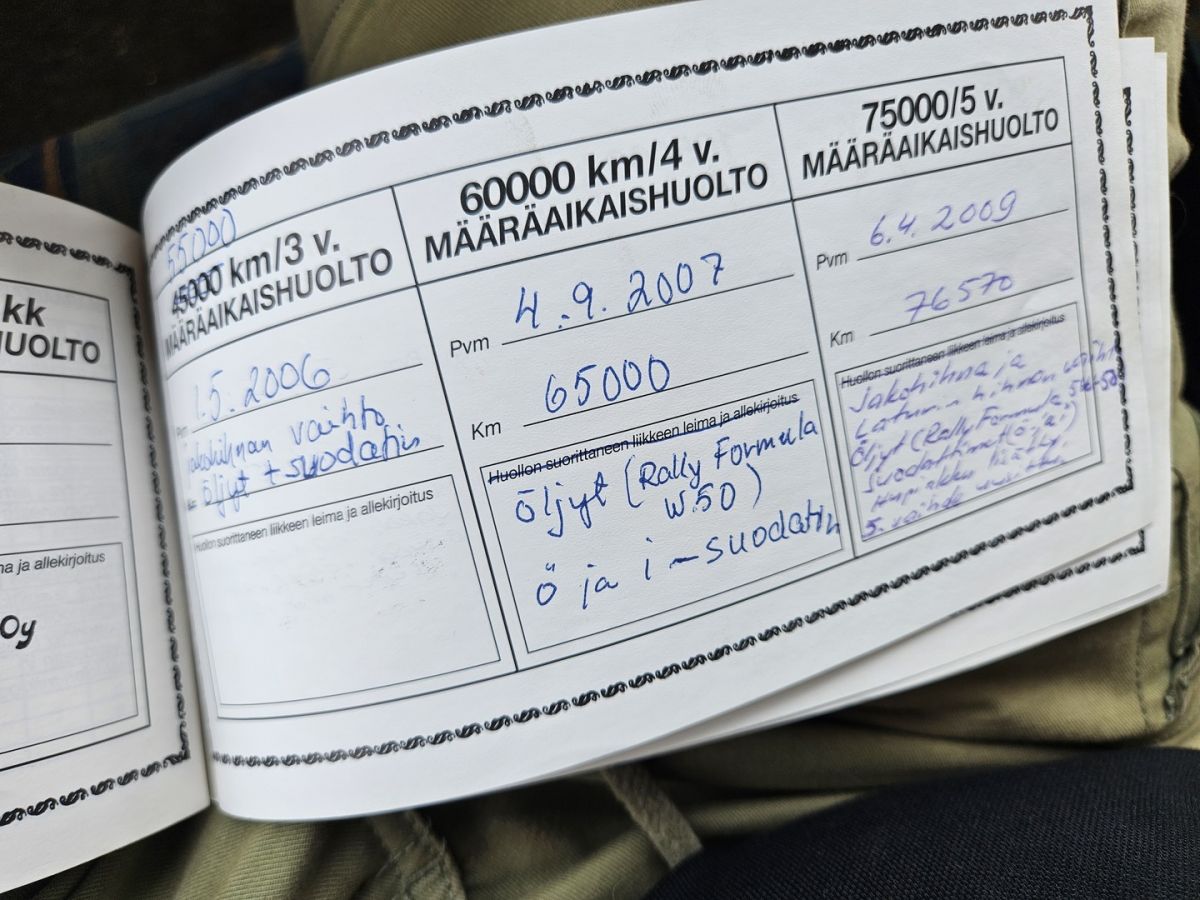 kk
HUOLTO
ma ja allekirjoitus
Oy
55000
45000 km/3 v.
MÄÄRÄAIKAISHUOLTO
1.5.2006
Jakohihnan vaihto
öljyt + suodatin
Huollon suorittaneen liikkeen leima ja allekirjoitus
60000 km/4 v.
MÄÄRÄAIKAISHUOLTO
Pvm 4.9.2007
Km 65000
Huollon suorittaneen liikkeen leima ja allekirjoitus
Öljyt (Rally Formula
W50)
ö ja i-suodatin
75000/5 v.
MÄÄRÄAIKAISHUOLTO
Pvm 6.4.2009
Km 76570
Huollon suorittaneen liikkeen leima ja allekirjoitus
Jakohihna ja
Laturin hihnan vaihto
Öljyt (Rally Formula
suodattimet (ö ja i)
5. vaihde